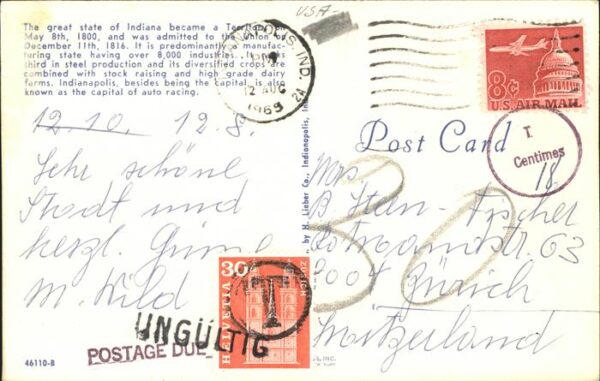 USA
The great state of Indiana became a Territory on
May 8th, 1800, and was admitted to the Union on
December 11th, 1816. It is predominantly a manufac-
turing state having over 8,000 industries. It ranks
third in steel production and its diversified crops are
combined with stock raising and high grade dairy
farms. Indianapolis, besides being the capital, is also
known as the capital of auto racing.
INDIANAPOLIS, IND.
PM
12 AUG
1969
8¢
U.S. AIR MAIL
T.
Centimes
18
12.10. 12.8.
Sehr schöne
Stadt und
herzl. Grüsse
M. Wild
Post Card
by H. Lieber Co., Indianapolis, Ind.
30
Mrs.
B Iten-Fischer
63
8004 Zürich
Switzerland
30
HELVETIA
ZÜRICH
T
UNGÜLTIG
POSTAGE DUE
46110-B